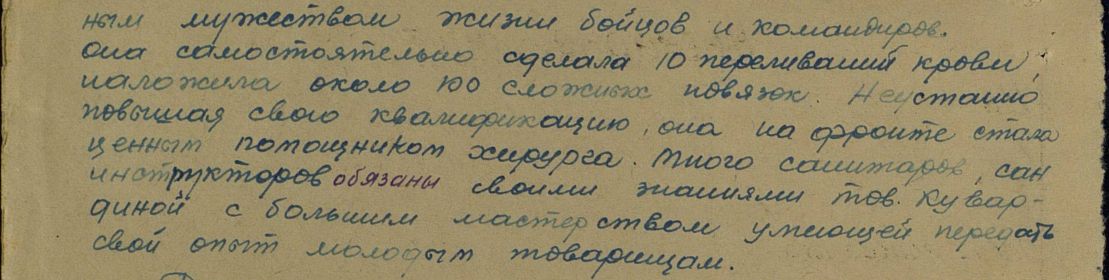 ным мужеством жизни бойцов и командиров.
она самостоятельно сделала 10 переливаний крови,
наложила около 100 сложных повязок. Неустанно
повышая свою квалификацию, она на фронте стала
ценным помощником хирурга. Много санитаров, сан
инструкторов обязаны своими знаниями тов. Кувар-
диной с большим мастерством умеющей передать
свой опыт молодым товарищам.